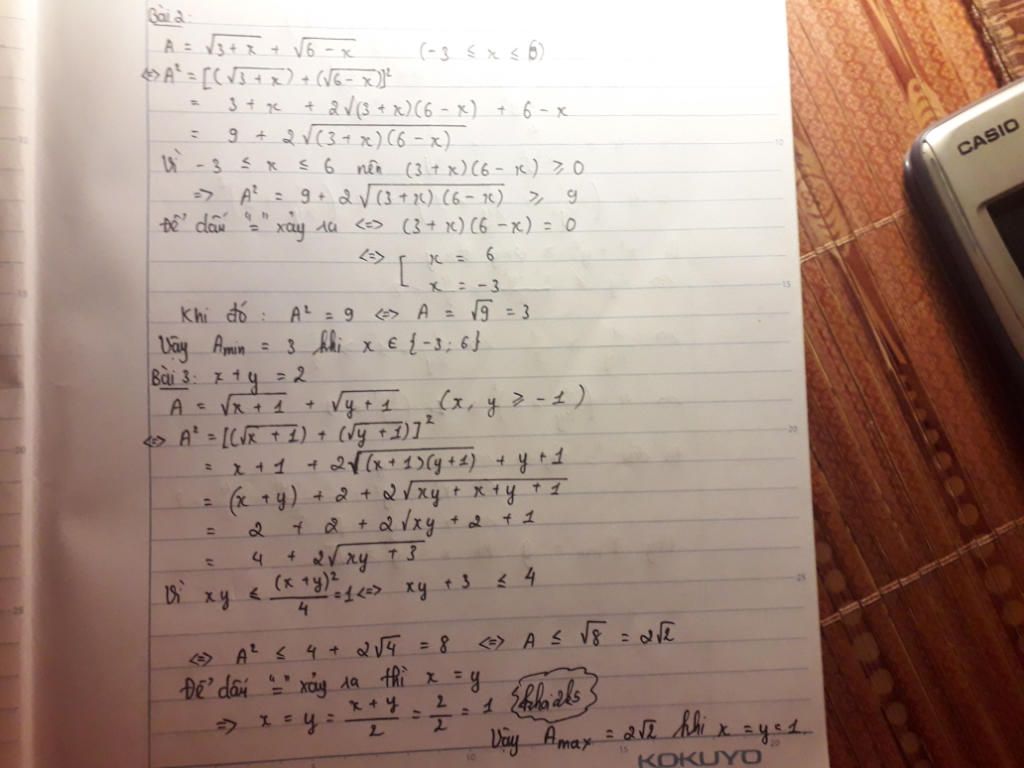 Bài 2:
A = √(3+x) + √(6-x) (-3 ≤ x ≤ 6)
<=> A² = [(√(3+x)) + (√(6-x))]²
= 3 + x + 2√(3+x)(6-x) + 6 - x
= 9 + 2√(3+x)(6-x)
Vì -3 ≤ x ≤ 6 nên (3+x)(6-x) ≥ 0
=> A² = 9 + 2√(3+x)(6-x) ≥ 9
Để dấu "=" xảy ra <=> (3+x)(6-x) = 0
<=> [ x = 6
x = -3
Khi đó: A² = 9 <=> A = √9 = 3
Vậy Amin = 3 khi x ∈ {-3; 6}
Bài 3: x + y = 2
A = √(x+1) + √(y+1) (x, y ≥ -1)
<=> A² = [(√(x+1)) + (√(y+1))]²
= x + 1 + 2√(x+1)(y+1) + y + 1
= (x + y) + 2 + 2√(xy + x + y + 1)
= 2 + 2 + 2√xy + 2 + 1
= 4 + 2√(xy + 3)
Vì xy ≤ (x+y)²/4 = 1 <=> xy + 3 ≤ 4
<=> A² ≤ 4 + 2√4 = 8 <=> A ≤ √8 = 2√2
Để dấu "=" xảy ra thì x = y
=> x = y = (x+y)/2 = 2/2 = 1 {khaizks
Vậy Amax = 2√2 khi x = y = 1
KOKUYO
CASIO